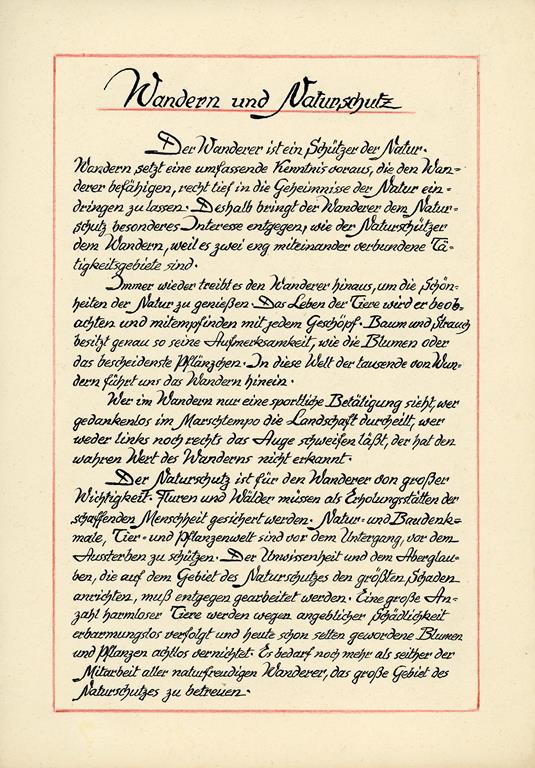 Wandern und Naturschutz
Der Wanderer ist ein Schützer der Natur.
Wandern setzt eine umfassende Kenntnis voraus, die den Wan=
derer befähigen, recht tief in die Geheimnisse der Natur ein=
dringen zu lassen. Deshalb bringt der Wanderer dem Natur=
schutz besonderes Interesse entgegen, wie der Naturschützer
dem Wandern, weil es zwei eng miteinander verbundene Tä-
tigkeitsgebiete sind.
Immer wieder treibt es den Wanderer hinaus, um die Schön=
heiten der Natur zu genießen. Das Leben der Tiere wird er beob=
achten und mitempfinden mit jedem Geschöpf. Baum und Strauch
besitzt genau so seine Aufmerksamkeit, wie die Blumen oder
das bescheidenste Pflänzchen. In diese Welt der tausende von Wun=
dern führt uns das Wandern hinein.
Wer im Wandern nur eine sportliche Betätigung sieht, wer
gedankenlos im Marschtempo die Landschaft durcheilt, wer
weder links noch rechts das Auge schweifen läßt, der hat den
wahren Wert des Wanderns nicht erkannt.
Der Naturschutz ist für den Wanderer von großer
Wichtigkeit. Fluren und Wälder müssen als Erholungsstätten der
schaffenden Menschheit gesichert werden. Natur- und Baudenk=
male, Tier- und Pflanzenwelt sind vor dem Untergang, vor dem
Aussterben zu schützen. Der Unwissenheit und dem Aberglau-
ben, die auf dem Gebiet des Naturschutzes den größten Schaden
anrichten, muß entgegen gearbeitet werden. Eine große An-
zahl harmloser Tiere werden wegen angeblicher Schädlichkeit
erbarmungslos verfolgt und heute schon selten gewordene Blumen
und Pflanzen achtlos vernichtet. Es bedarf noch mehr als seither der
Mitarbeit aller naturfreudigen Wanderer, das große Gebiet des
Naturschutzes zu betreuen.